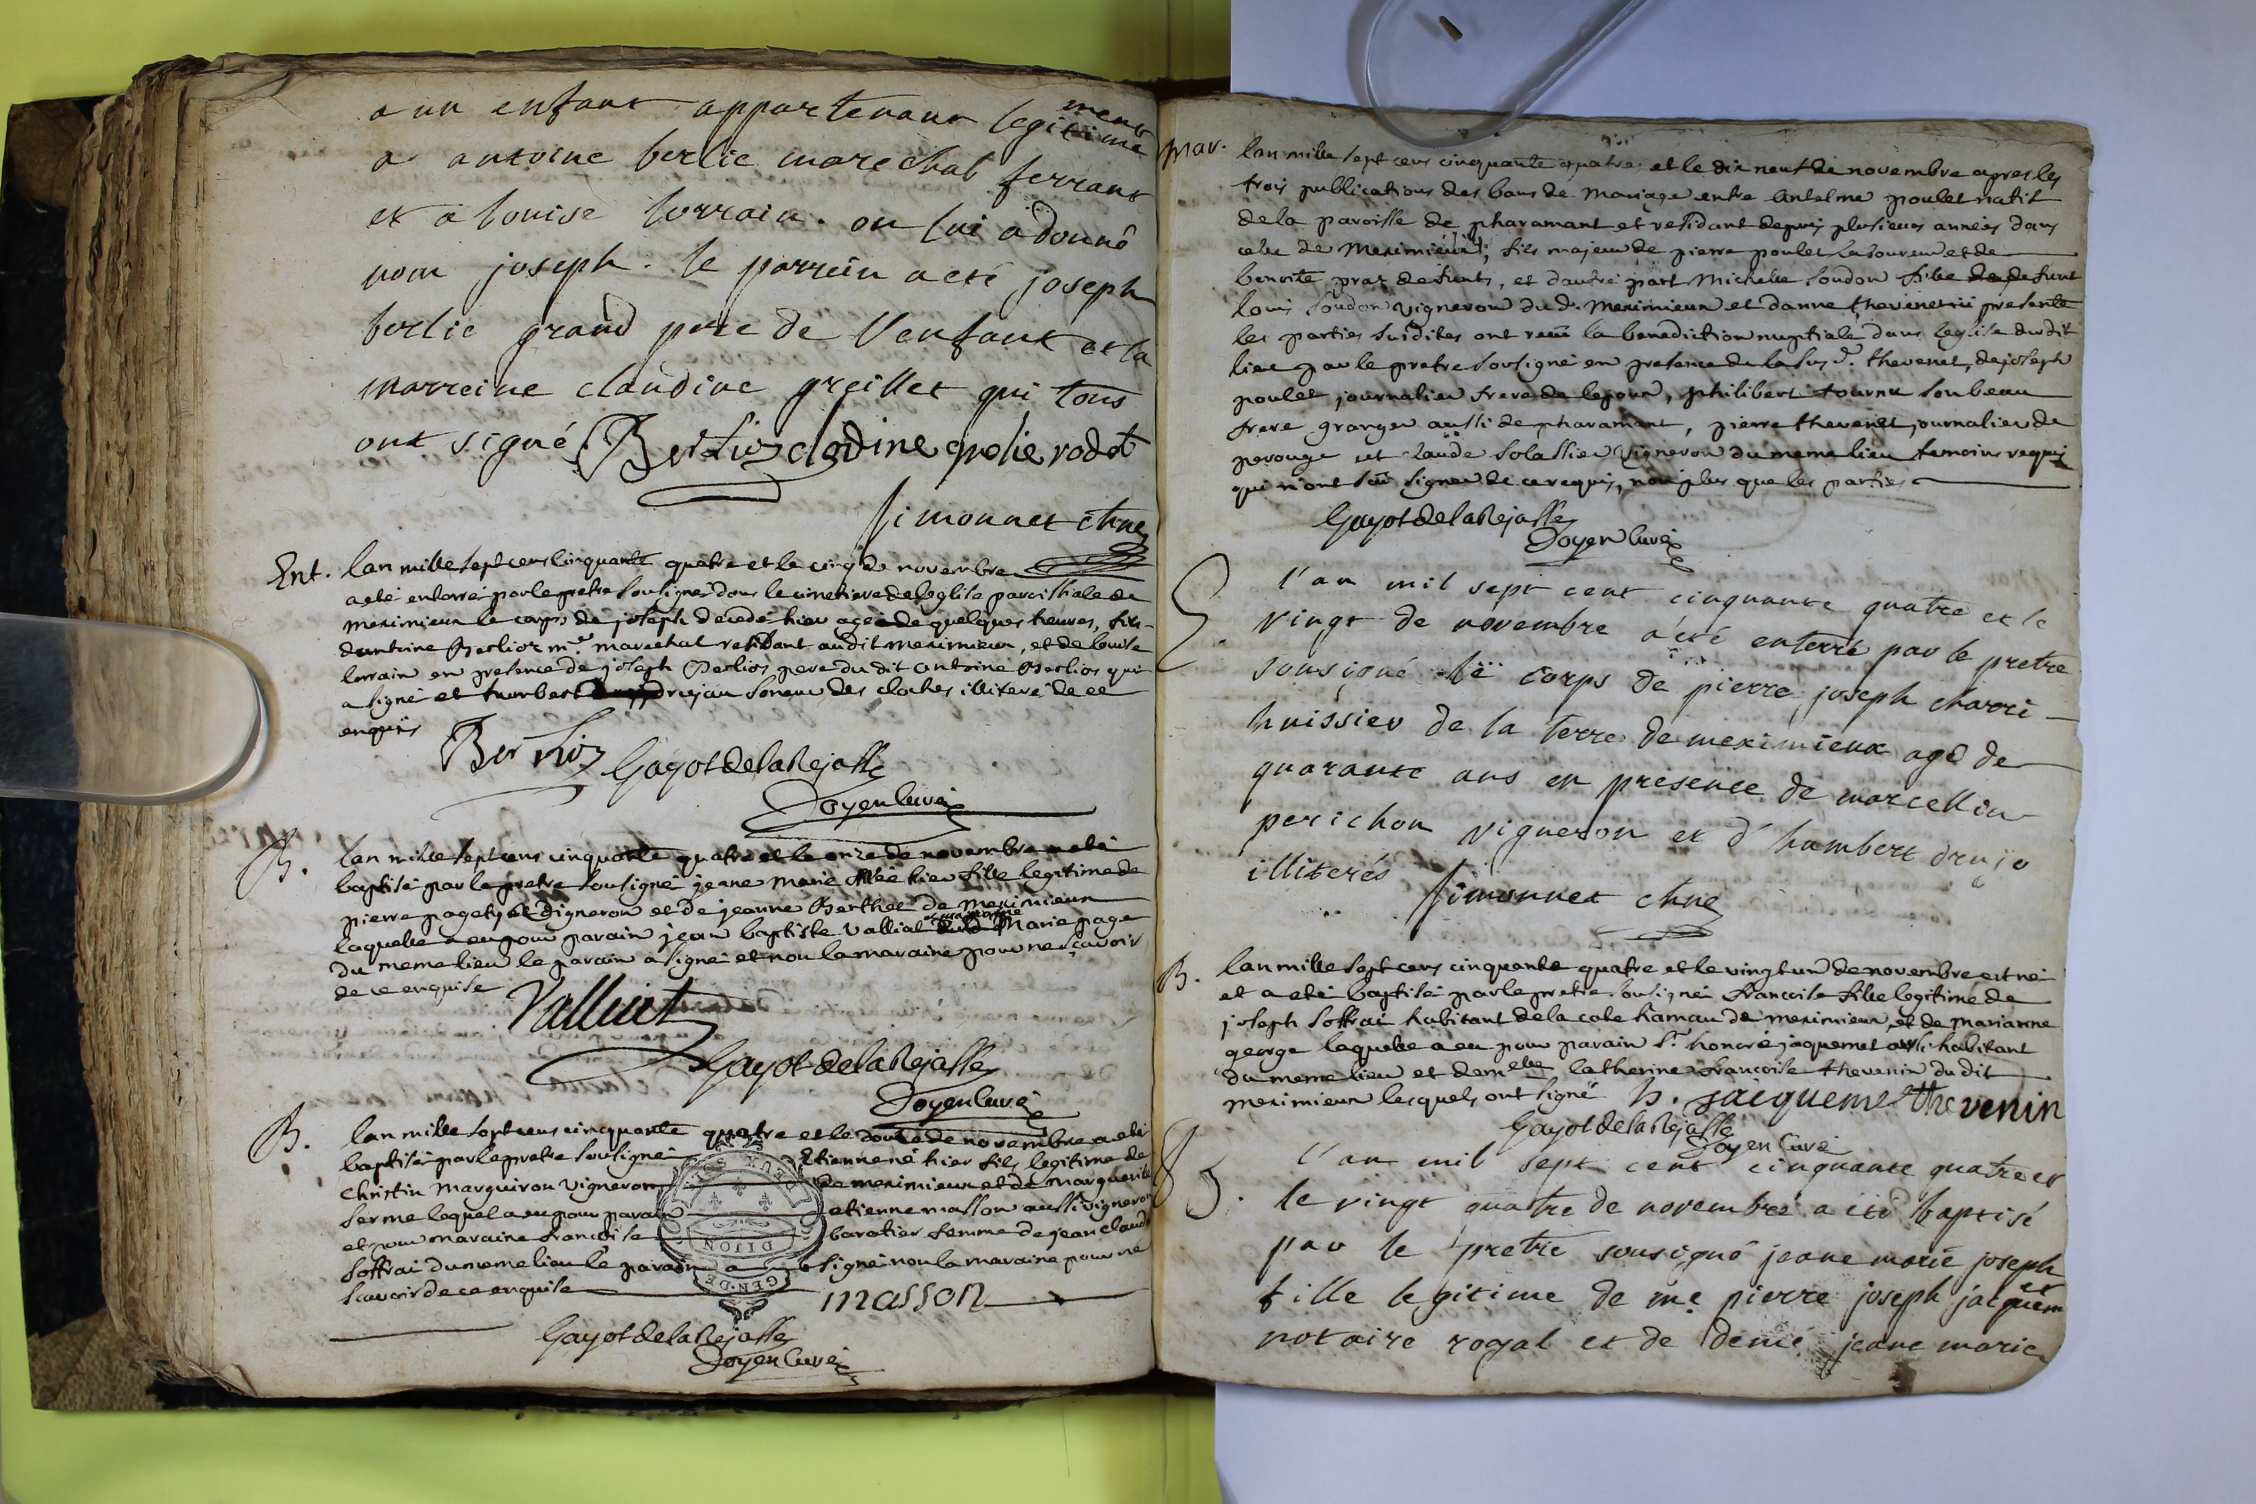 a un enfant appartenant legitimement
a antoine berlie marechal ferrant
et a louise lorrain. on lui a donné
nom joseph. le parrein a eté joseph
berlie grand pere de l'enfant et la
marreine claudine greillet qui tous
ont signé Berlioz clodine grelie rodet
Simonnet chne
Ent. lan mille sept cens cinquante quatre et le cinq de novembre
a eté enterré par le pretre sousigné dans le cimetiere de leglise paroissiale de
meximieux le corps de joseph decedé hier agé de quelques heures, fils
dantoine Berlioz me marechal residant audit meximieux, et de louise
lorrain en presence de joseph Berlios pere dudit antoine Berlios qui
a signé et humbert drujau soneur des cloches illiteré de ce
enquis
Berlioz Gayot de la Rejasse
Doyen Curé
B. lan mille sept cens cinquante quatre et le onze de novembre a eté
baptisé par le pretre sousigné jeane marie née hier fille legitime de
pierre page vigneron et de jeanne Berthet de meximieux
laquelle a eu pour parain jean baptiste Valliat et pour maraine Marie page
du meme lieu le parain a signé et non la maraine pour ne sçavoir
de ce enquise
Valluet
Gayot de la Rejasse
Doyen Curé
B. lan mille sept cens cinquante quatre et le douze de novembre a eté
baptisé par le pretre sousigné Etienne né hier fils legitime de
Christin Marguiron vigneron de meximieux et de marguerite
ferme lequel a eu pour parain etienne masson aussi vigneron
et pour maraine francoise baratier femme de jean claude
Soffrai du meme lieu le parain a signé non la maraine pour ne
scavoir de ce enquise masson
DIJON
GEN. DE
Gayot de la Rejasse
Doyen Curé
Mar. lan mille sept cens cinquante quatre et le dix neuf de novembre apres les
trois publications des bans de mariage entre Antelme poulet natif
de la paroisse de pharamant et residant depuis plusieurs années dans
celle de Meximieux, fils majeur de pierre poulet laboureur et de
benoite praz defunts, et dautre part Michelle loudon fille de defunt
louis loudon vigneron du d. meximieux et danne thevenet ici presente
les parties susdites ont reçu la benediction nuptiale dans leglise dudit
lieu par le pretre sousigné en presence de la susd. thevenet, de joseph
poulet journalier frere de lepoux, philibert tournu son beau
frere granger aussi de pharamant, pierre thevenet journalier de
perouge et claude solassier vigneron du meme lieu temoins requis
qui n'ont sçu signer de ce requis, non plus que les parties
Gayot de la Rejasse
Doyen Curé
S. l'an mil sept cent cinquante quatre et le
vingt de novembre a eté enterré par le pretre
sousigné le corps de pierre joseph charre
huissier de la terre de meximieux agé de
quarante ans en presence de marcellin
perichon vigneron et d'humbert drujo
illiterés Simonnet chne
B. lan mille sept cens cinquante quatre et le vingt un de novembre est né
et a eté baptisé par le pretre sousigné francoise fille legitime de
joseph Soffrai habitant de la cote hamau de meximieux et de marianne
george laquelle a eu pour parain sr. honoré jaquemet aussi habitant
du meme lieu et demelle Catherine francoise thevenin du dit
meximieux lesquels ont signé h. jaiquemet thevenin
Gayot de la Rejasse
Doyen Curé
B. l'an mil sept cent cinquante quatre et
le vingt quatre de novembre a eté baptisé
par le pretre sousigné jeane marie joseph
fille legitime de me pierre joseph jacquemet
notaire royal et de deme jeane marie